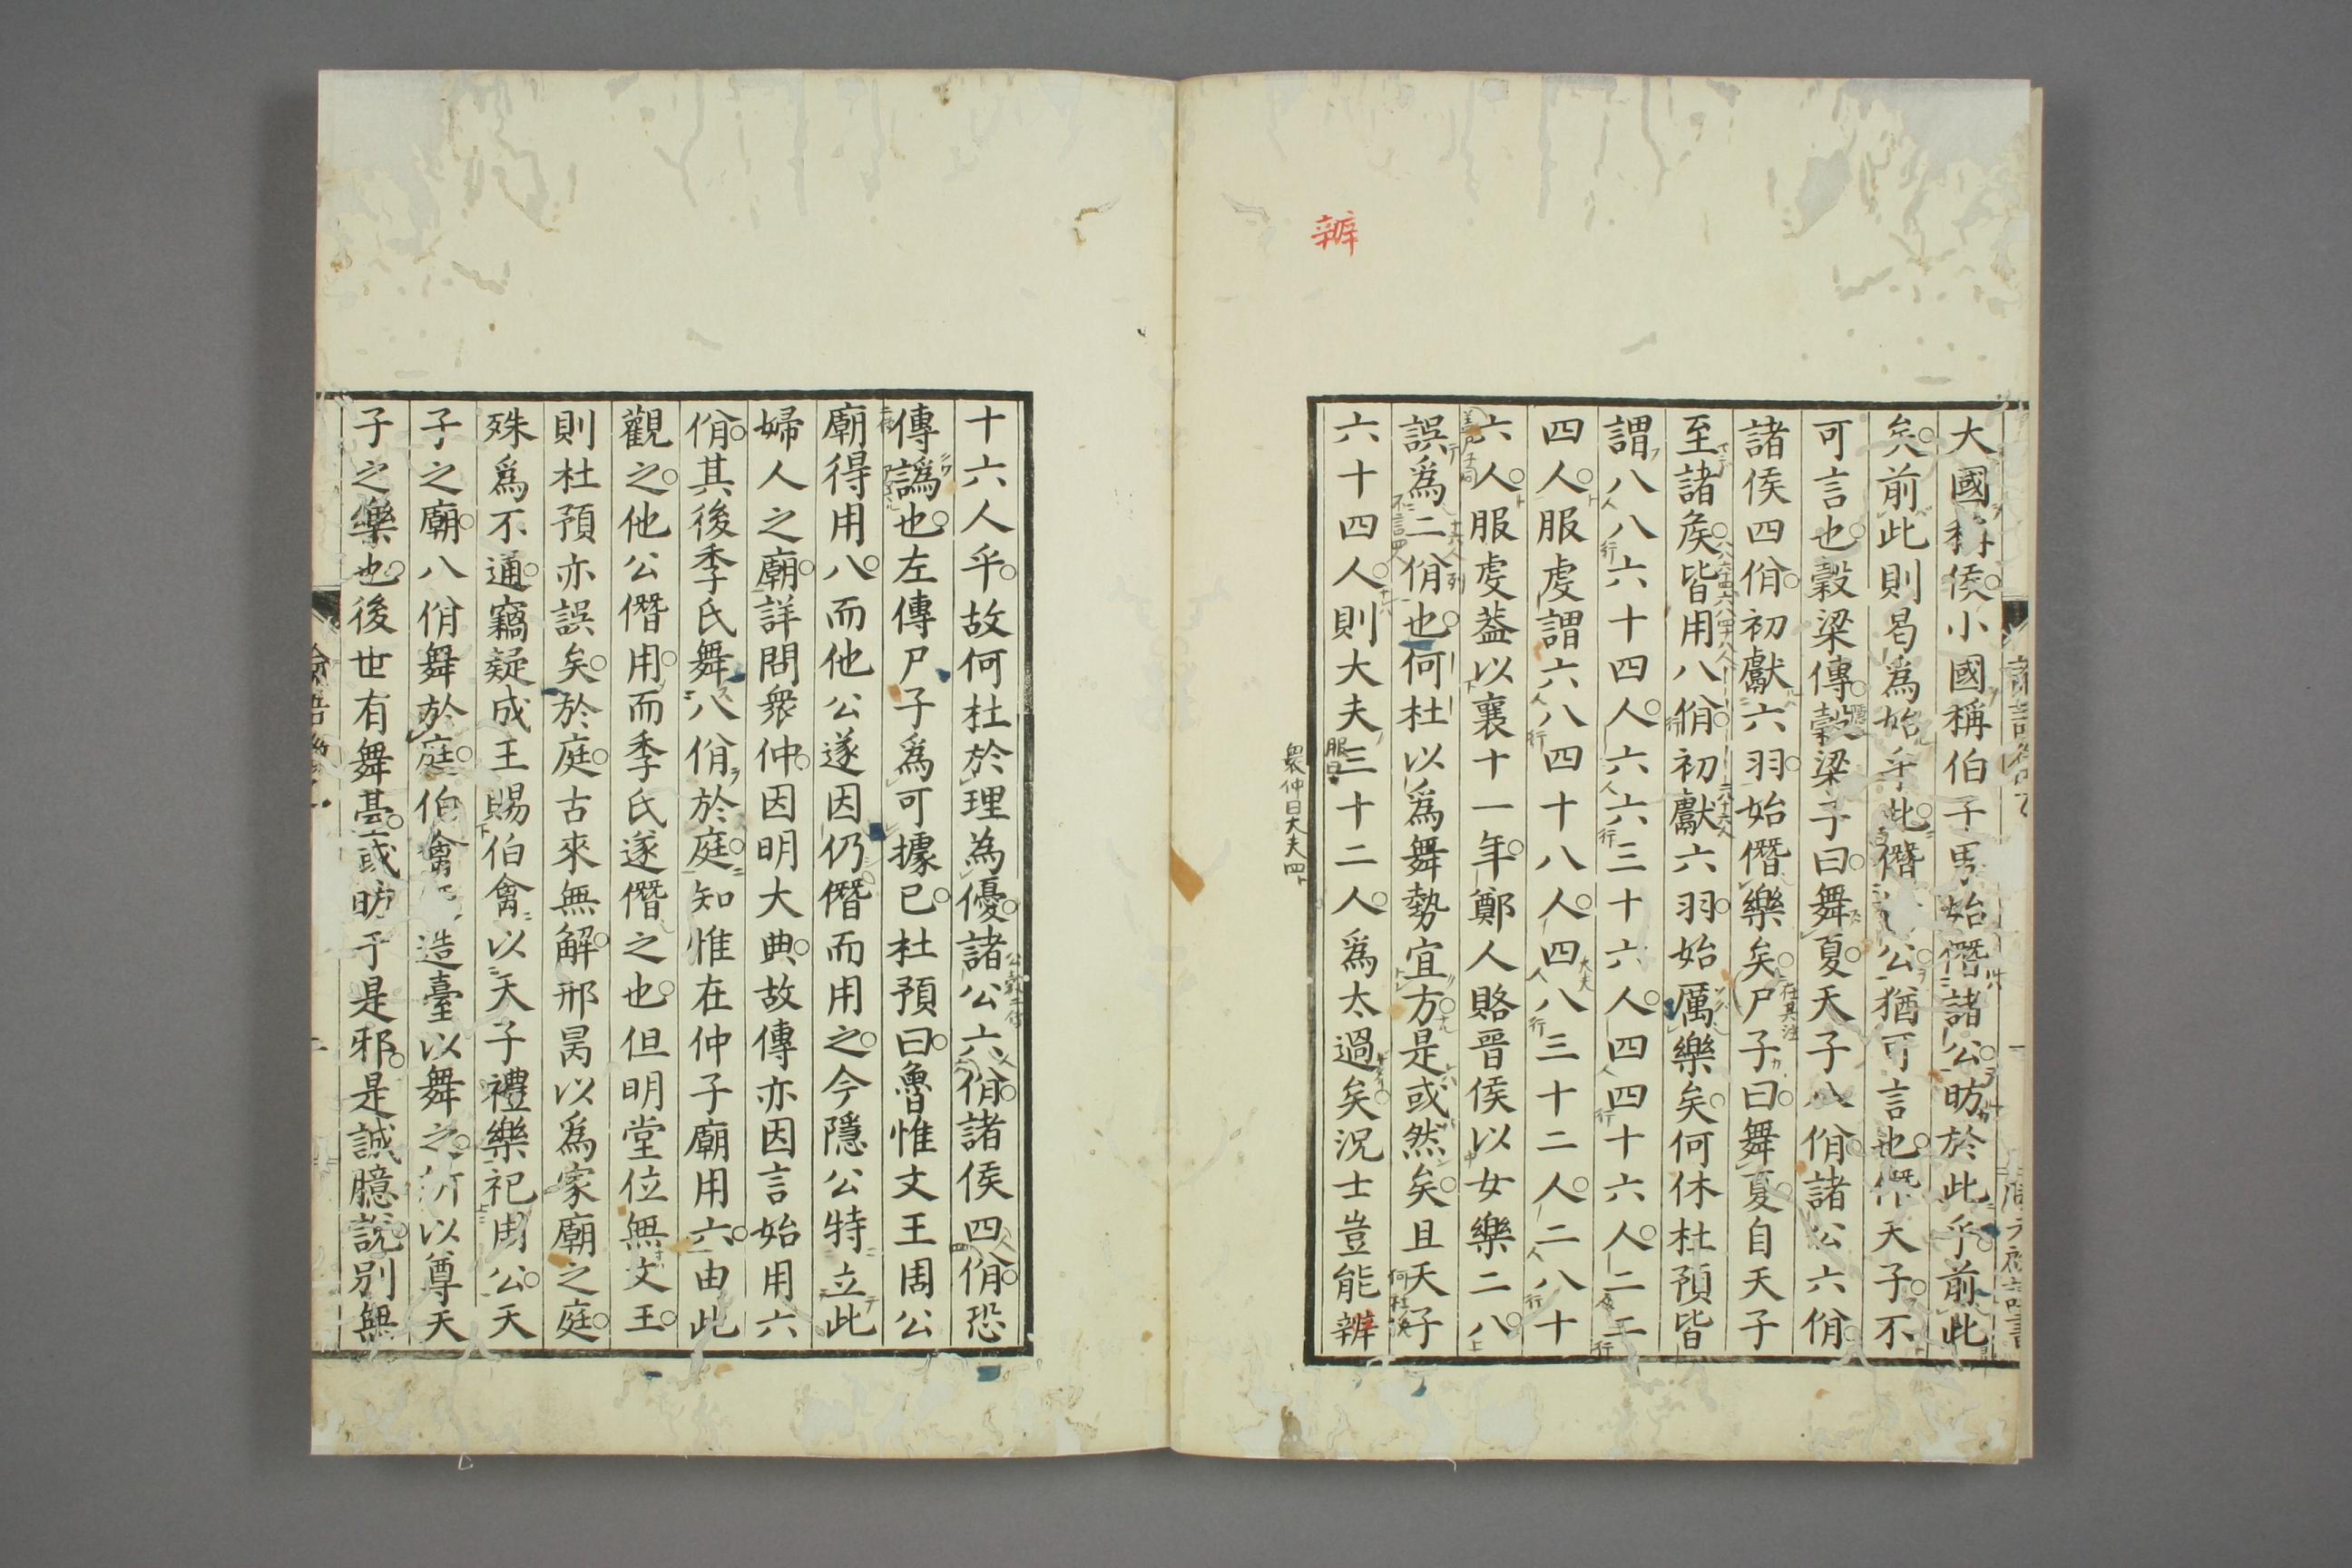 大國稱侯小國稱伯子男始僭諸公昉於此乎前此
矣前此則曷爲始乎此僭公猶可言也僭天子不
可言也穀梁傳穀梁子曰舞夏天子八佾諸公六佾
諸侯四佾初獻六羽始僭樂矣尸子曰舞夏自天子
至諸侯皆用八佾初獻六羽始厲樂矣何休杜預皆
謂八八六十四人六六三十六人四四十六人二二
四人服虔謂六八四十八人四八三十二人二八十
六人服虔蓋以襄十一年鄭人賂晉侯以女樂二八
誤爲二佾也何杜以爲舞勢宜方是或然矣且天子
六十四人則大夫三十二人爲太過矣況士豈能辨
衆仲曰大夫四
辨
十六人乎故何杜於理爲優諸公六佾諸侯四佾恐
傳譌也左傳尸子爲可據已杜預曰魯惟文王周公
廟得用八而他公遂因仍僭而用之今隱公特立此
婦人之廟詳問衆仲因明大典故傳亦因言始用六
佾其後季氏舞八佾於庭知惟在仲子廟用六由此
觀之他公僭用而季氏遂僭之也但明堂位無文王
則杜預亦誤矣於庭古來無解邢昺以爲家廟之庭
殊爲不通竊疑成王賜伯禽以天子禮樂祀周公天
子之廟八佾舞於庭伯禽造臺以舞之所以尊天
子之樂也後世有舞臺或昉于是邪是誠臆說別無